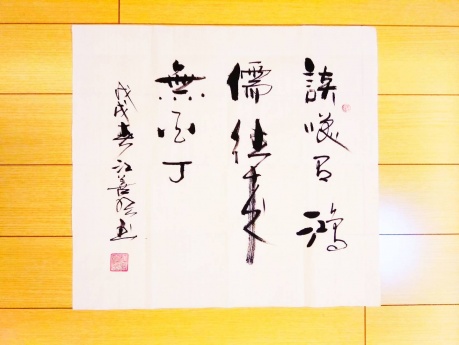 談笑有鴻
儒往來
無白丁
戊戌春江善